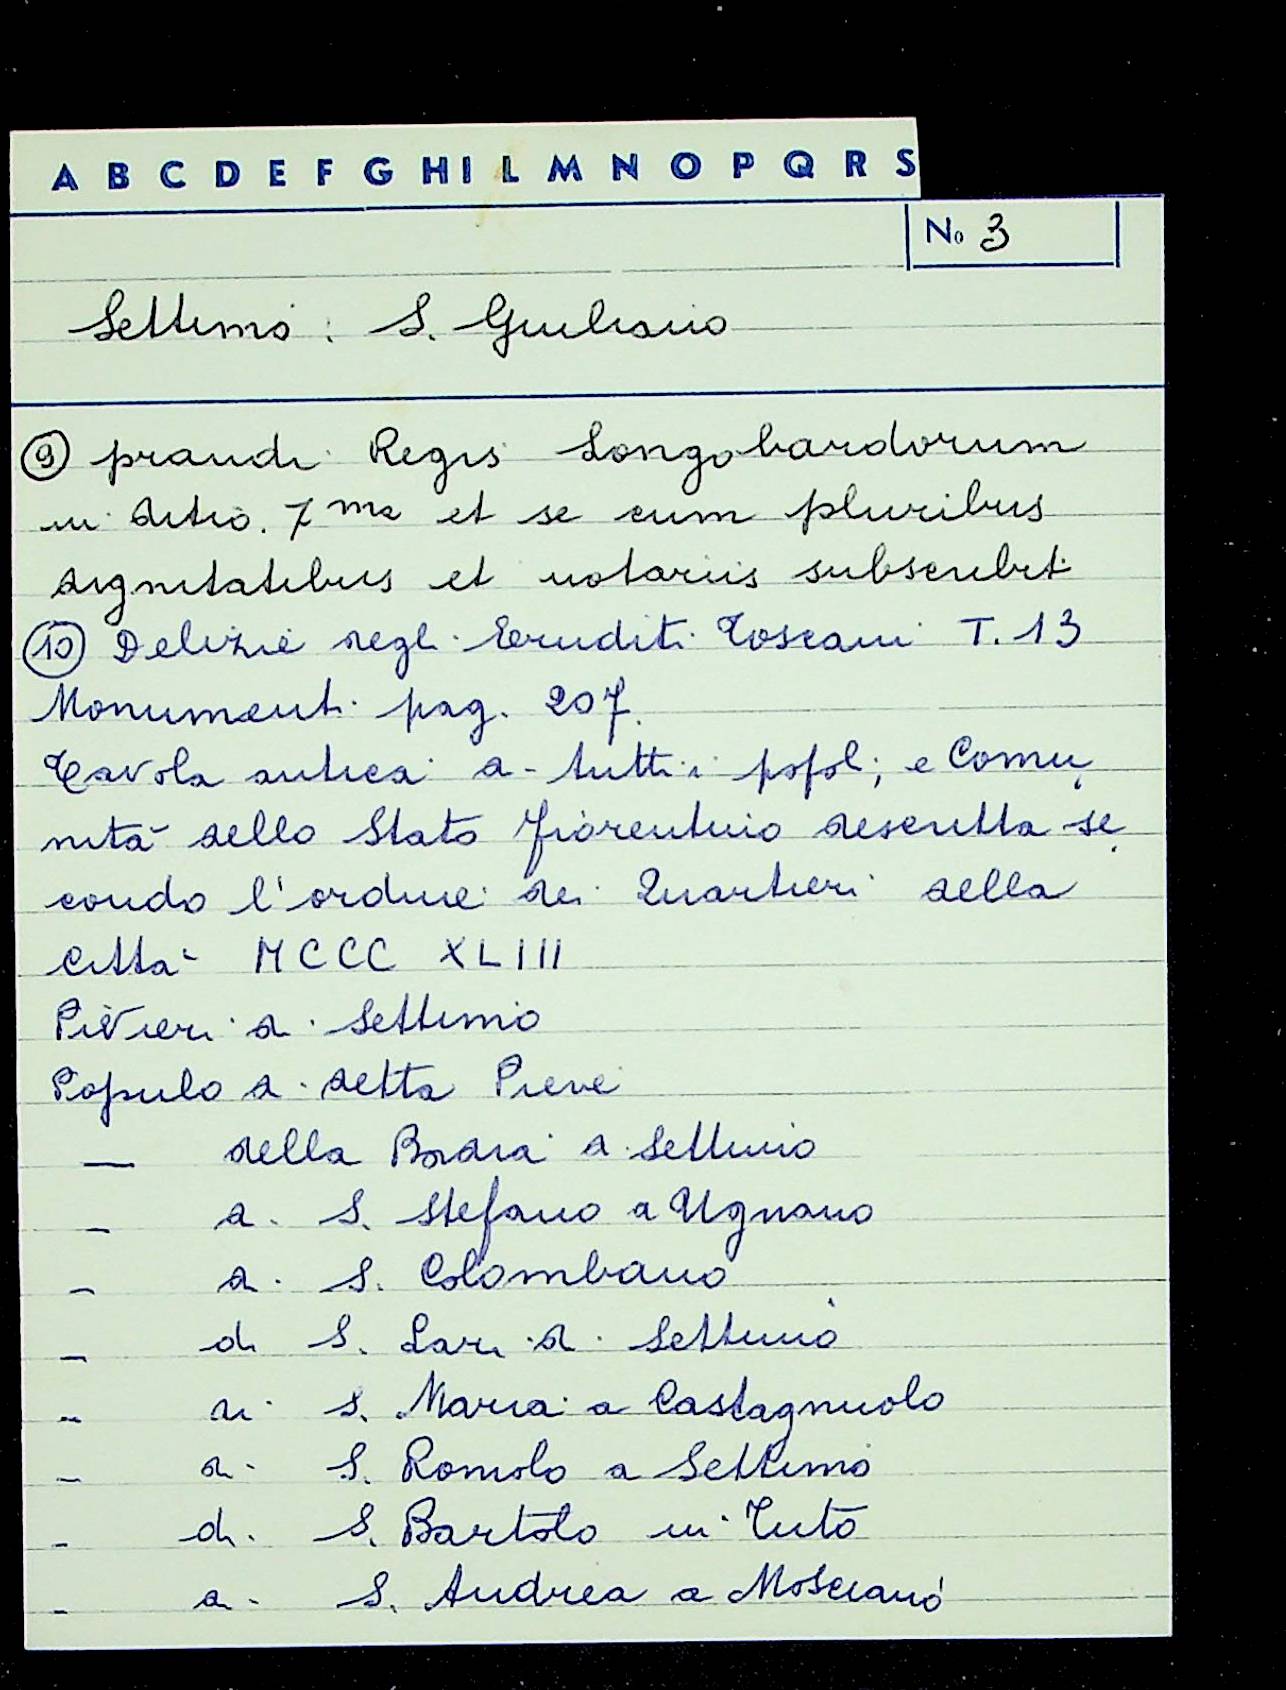 A B C D E F G H I L M N O P Q R S
No 3
Settimo : S. Giuliano
⑨ prandi Regis Longobardorum
in ditio. 7ma et se cum pluribus
dignitatibus et notariis subscribit
⑩ Delizie degli Eruditi Toscani T. 13
Monumenti pag. 207.
Tavola antica di tutti i popoli; e Comu
nità dello Stato fiorentino descritta se
condo l'ordine dei Quartieri della
città MCCC XLIII
Pivieri di Settimo
Populo di detta Pieve
— della Badia a Settimo
— di S. Stefano a Ugnano
— di S. Colombano
— di S. Lari di Settimo
— di S. Maria a Castagnuolo
— di S. Romolo a Settimo
— di S. Bartolo in Tuto
— di S. Andrea a Mosciano